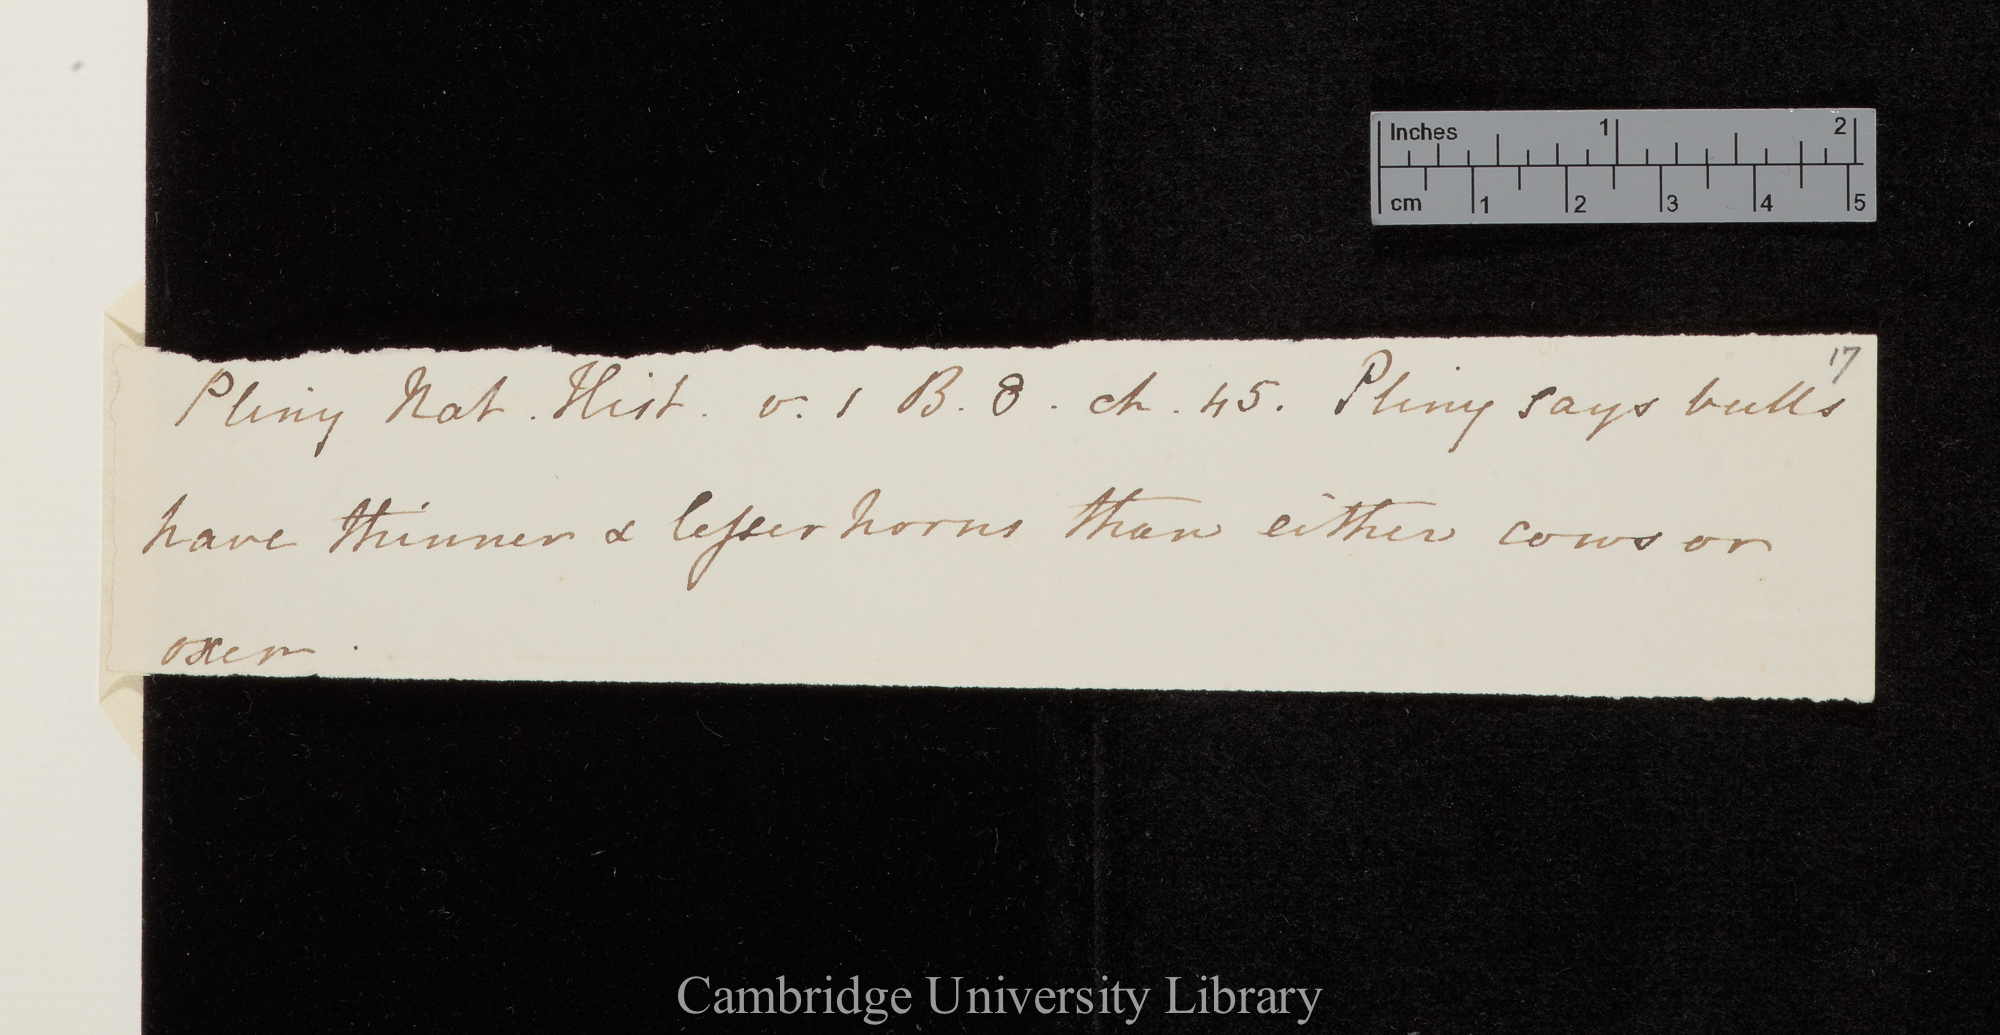 Inches 1 2
cm 1 2 3 4 5
17
Pliny Nat. Hist. v. 1 B. 8. ch. 45. Pliny says bulls
have thinner & lesser horns than either cows or
oxen.
Cambridge University Library